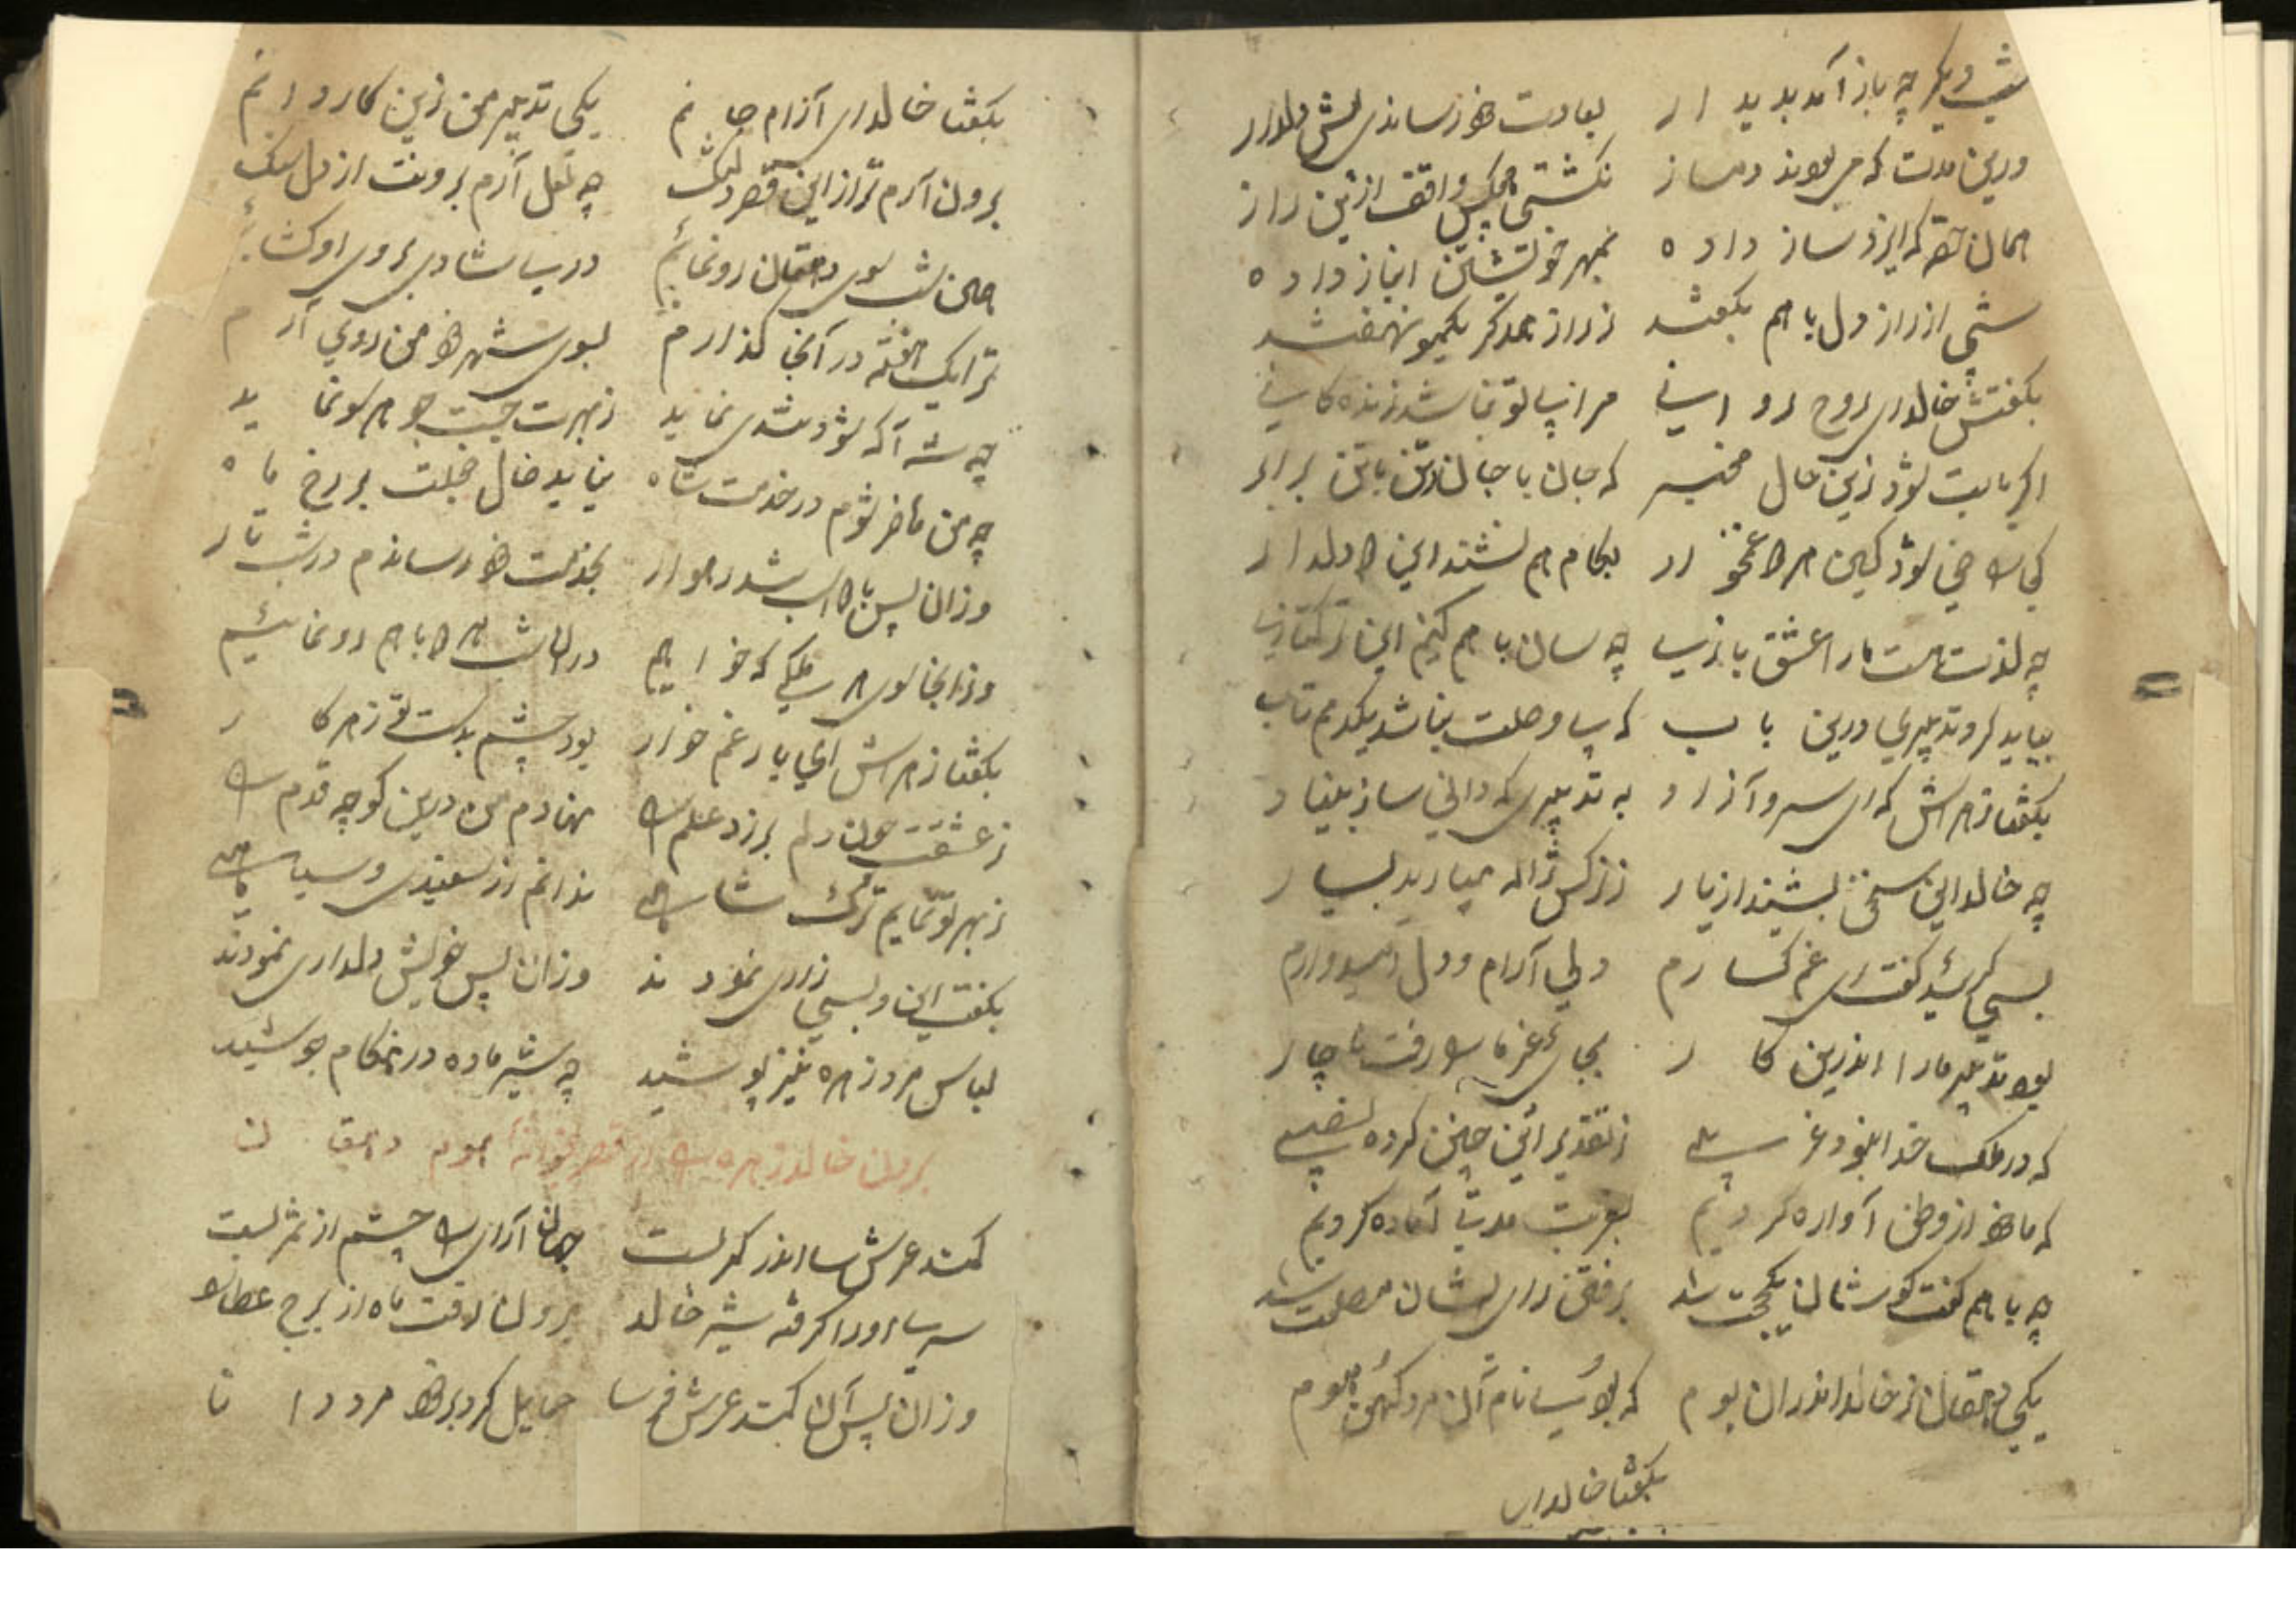 شب دیگر چه باز آمد بدیدار بعادت خود رساندی پیش دلدار
درین مدت که می بودند دمساز نکشتی هیچکس واقف ازین راز
همان قصر که ایزد ساز داده بمهر خویشتن انباز داده
شبی از راز دل با هم بگفتند ز راز همدکر یکمو نهفتند
بگفتش خالد ای روح روانی مرا بی تو نباشد زندکانی
اکر بابت بود زین حال مخبر که جان با جان و تن با تن برابر
کجا راضی بود کین هر دو غمخوار بکام هم نشیند این دو دلدار
چه لذت هست ما را عشق بازی چه سان با هم کنیم این ترکتازی
بباید کرد تدبیری درین باب که بی وصلت نباشد یکدمم تاب
بگفتا زهراش کای سرو آزاد به تدبیری که دانی ساز بنیاد
چه خالد این سخن بشنید از یار ز نرکس ژاله میبارید بسیار
بسی کرئید گفت ای غم کسارم دلی آرام و دل امیدوارم
بود تدبیر ما را اندرین کار بجای غیر ما رفت ناچار
که در ملک خدا بنود غریبی ز تقدیر این چنین کرده نصیبی
که ما خود از وطن آواره کردیم بغربت مدتی آماده کردیم
چه با هم گفت کوشان یکجهت شد برفتن رای ایشان مصلحت شد
یکی دهقان بر خالد اندران بوم که بود نام آن مرد کهن موم
بگفتا خالد ای
بگفتا خالد ای آرام جانم یکی تدبیر من زین کار دانم
برون آرم ترا از این قصر دلتنگ چه لعل آرم برونت از دل سنک
همین شب سوی دهقان رونمائیم در شادی بروی او کشائیم
ترا یک هفته در آنجا کذارم بسوی شهر خود من روی آرم
چه شه آکه بود شدی نماید ز بهرت جست جو هر سو نماید
چه من حاضر شوم در خدمت شاه نیاید خال خجلت بر رخ ماه
وزان پس با دو اسب راهوار بخدمت خود رسانم در شب تار
وزانجا سوی هر ملکی که خواهیم در آن شب هر دو با هم رونمائیم
بگفتا زهراش ای یار غم خوار بود چشمم بدستت هر کار
ز عشقت چون دلم بر زد علم را نهادم من درین کوچه قدم را
ز بهر تو نمایم ترک شاهی ندانم از سفیدی و سیاهی
بگفت این و بسی زاری نمودند وزان پس خویش دلداری نمودند
لباس مرد زهره نیز پوشید چه شیر ماده در هنکام جوشید
برون خالد زهره را از قصر بخانه بوم دهقان
کمند عرش سا اندر کمر بست جهان آرای را چشم از نظر بست
سراسر او را کرفته شیر خالد برون رفت ماه از برج عطارد
وزان پس آن کمند عرش فرسا حمایل کرد بر خود مرد دانا